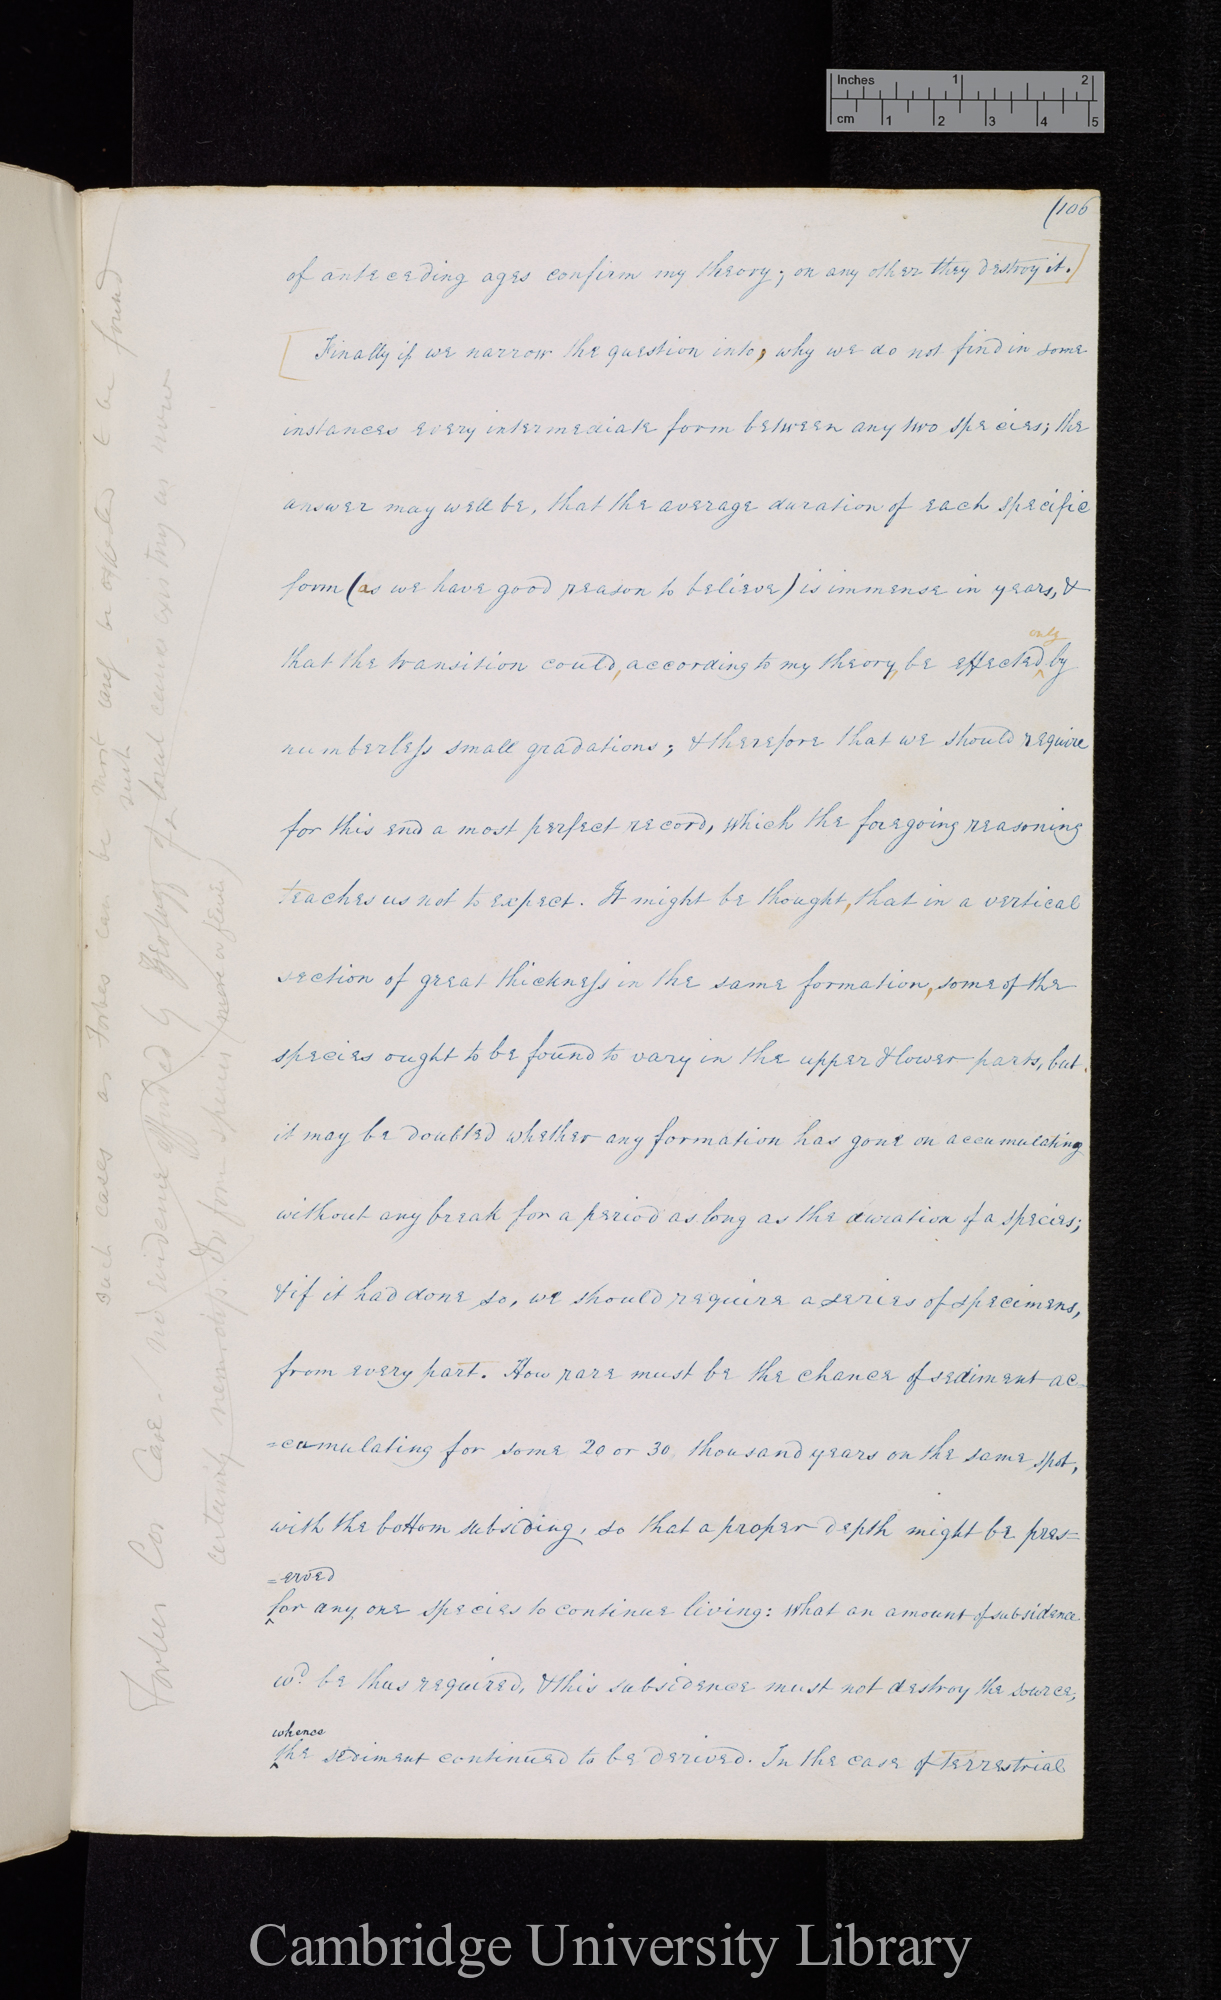 Inches 1 2
cm 1 2 3 4 5
(106
of anteceding ages confirm my theory; on any other they destroy it.]
[Finally if we narrow the question into, why we do not find in some
instances every intermediate form between any two species; the
answer may well be, that the average duration of each specific
form (as we have good reason to believe) is immense in years, &
that the transition could, according to my theory, be effected only by
numberless small gradations; & therefore that we should require
for this end a most perfect record, which the foregoing reasoning
teaches us not to expect. It might be thought, that in a vertical
section of great thickness in the same formation, some of the
species ought to be found to vary in the upper & lower parts, but
it may be doubted whether any formation has gone on accumulating
without any break for a period as long as the duration of a species;
& if it had done so, we should require a series of specimens,
from every part. How rare must be the chance of sediment ac-
=cumulating for some 20 or 30 thousand years on the same spot,
with the bottom subsiding, so that a proper depth might be pres=
=erved
for any one species to continue living: what an amount of subsidence
wd. be thus required, & this subsidence must not destroy the source,
whence
the sediment continued to be derived. In the case of terrestrial
such cases as Forbes can be most only be expected to be found
such
Forbes Cos Case - no evidence afforded by Geology of local causes existing as now
certainly nevertheless form species more or fewer
Cambridge University Library